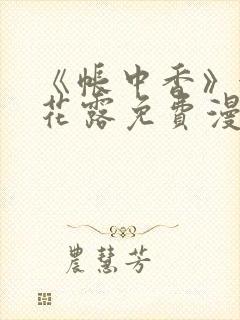 《帐中香》
花露免费漫
農慧芳